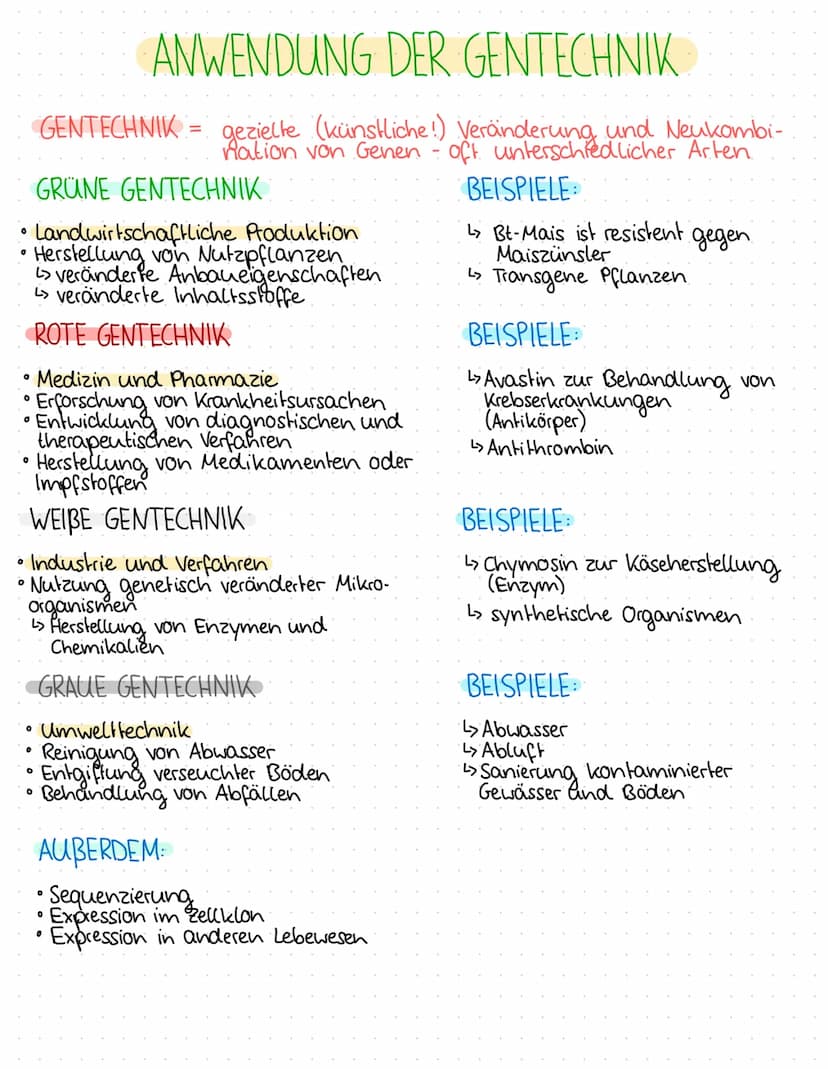 ANWENDUNG DER GENTECHNIK
GENTECHNIK = gezielte (künstliche!) Veränderung und Neukombi-
nation von Genen - oft unterschiedlicher Arten
GRÜNE GENTECHNIK
• Landwirtschaftliche Produktion
• Herstellung von Nutzpflanzen
↳ veränderte Anbaueigenschaften
↳ veränderte Inhaltsstoffe
BEISPIELE:
↳ Bt-Mais ist resistent gegen
Maiszünsler
↳ Transgene Pflanzen
ROTE GENTECHNIK
• Medizin und Pharmazie
• Erforschung von Krankheitsursachen
• Entwicklung von diagnostischen und
therapeutischen Verfahren
• Herstellung von Medikamenten oder
Impfstoffen
BEISPIELE:
↳ Avastin zur Behandlung von
Krebserkrankungen
(Antikörper)
↳ Antithrombin
WEIßE GENTECHNIK
• Industrie und Verfahren
• Nutzung genetisch veränderter Mikro-
organismen
↳ Herstellung von Enzymen und
Chemikalien
BEISPIELE:
↳ Chymosin zur Käseherstellung
(Enzym)
↳ synthetische Organismen
GRAUE GENTECHNIK
• Umwelttechnik
• Reinigung von Abwasser
• Entgiftung verseuchter Böden
• Behandlung von Abfällen
BEISPIELE:
↳ Abwasser
↳ Abluft
↳ Sanierung kontaminierter
Gewässer und Böden
AUßERDEM:
• Sequenzierung
• Expression im Zellklon
• Expression in anderen Lebewesen